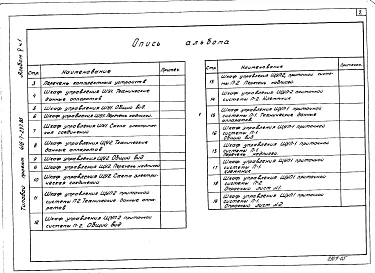 3
Опись альбома
Альбом
Типовой проект
Стр.
Наименование
Примеч.
3 Перечень комплектных устройств
4 Шкаф управления ШУ1. Технические
данные аппаратов
5 Шкаф управления ШУ1. Общий вид
6 Шкаф управления ШУ1. Перечень надписей
7 Шкаф управления ШУ1. Схема электриче-
ских соединений
8 Шкаф управления ШУ2. Технические
данные аппаратов
9 Шкаф управления ШУ2. Общий вид
9 Шкаф управления ШУ2. Перечень надписей
10 Шкаф управления ШУ2. Схема электри-
ческая соединений
11 Шкаф управления ЩУП2 приточной
системы П-2. Технические данные аппа-
ратов
12 Шкаф управления ЩУП2 приточной
системы П-2. Общий вид
Стр.
Наименование
Примечан.
13 Шкаф управления ЩУП2, приточной систе-
мы П-2. Перечень надписей
14 Шкаф управления ЩУП2 приточной
системы П-2. Клеммник
15 Шкаф управления ЩУП1 приточной
системы П-1. Технические данные
аппаратов
16 Шкаф управления ЩУП1 приточной
системы П-1. Общий вид
Шкаф управления ЩУП-1 приточной
системы П-1.
Перечень надписей
17 Шкаф управления ЩУП1 приточной
системы П-1.
Клеммник
18 Шкаф управления ЩУП1 приточной
системы П-2
Опросный лист №1.
19 Шкаф управления ЩУП1 приточной
системы П-1.